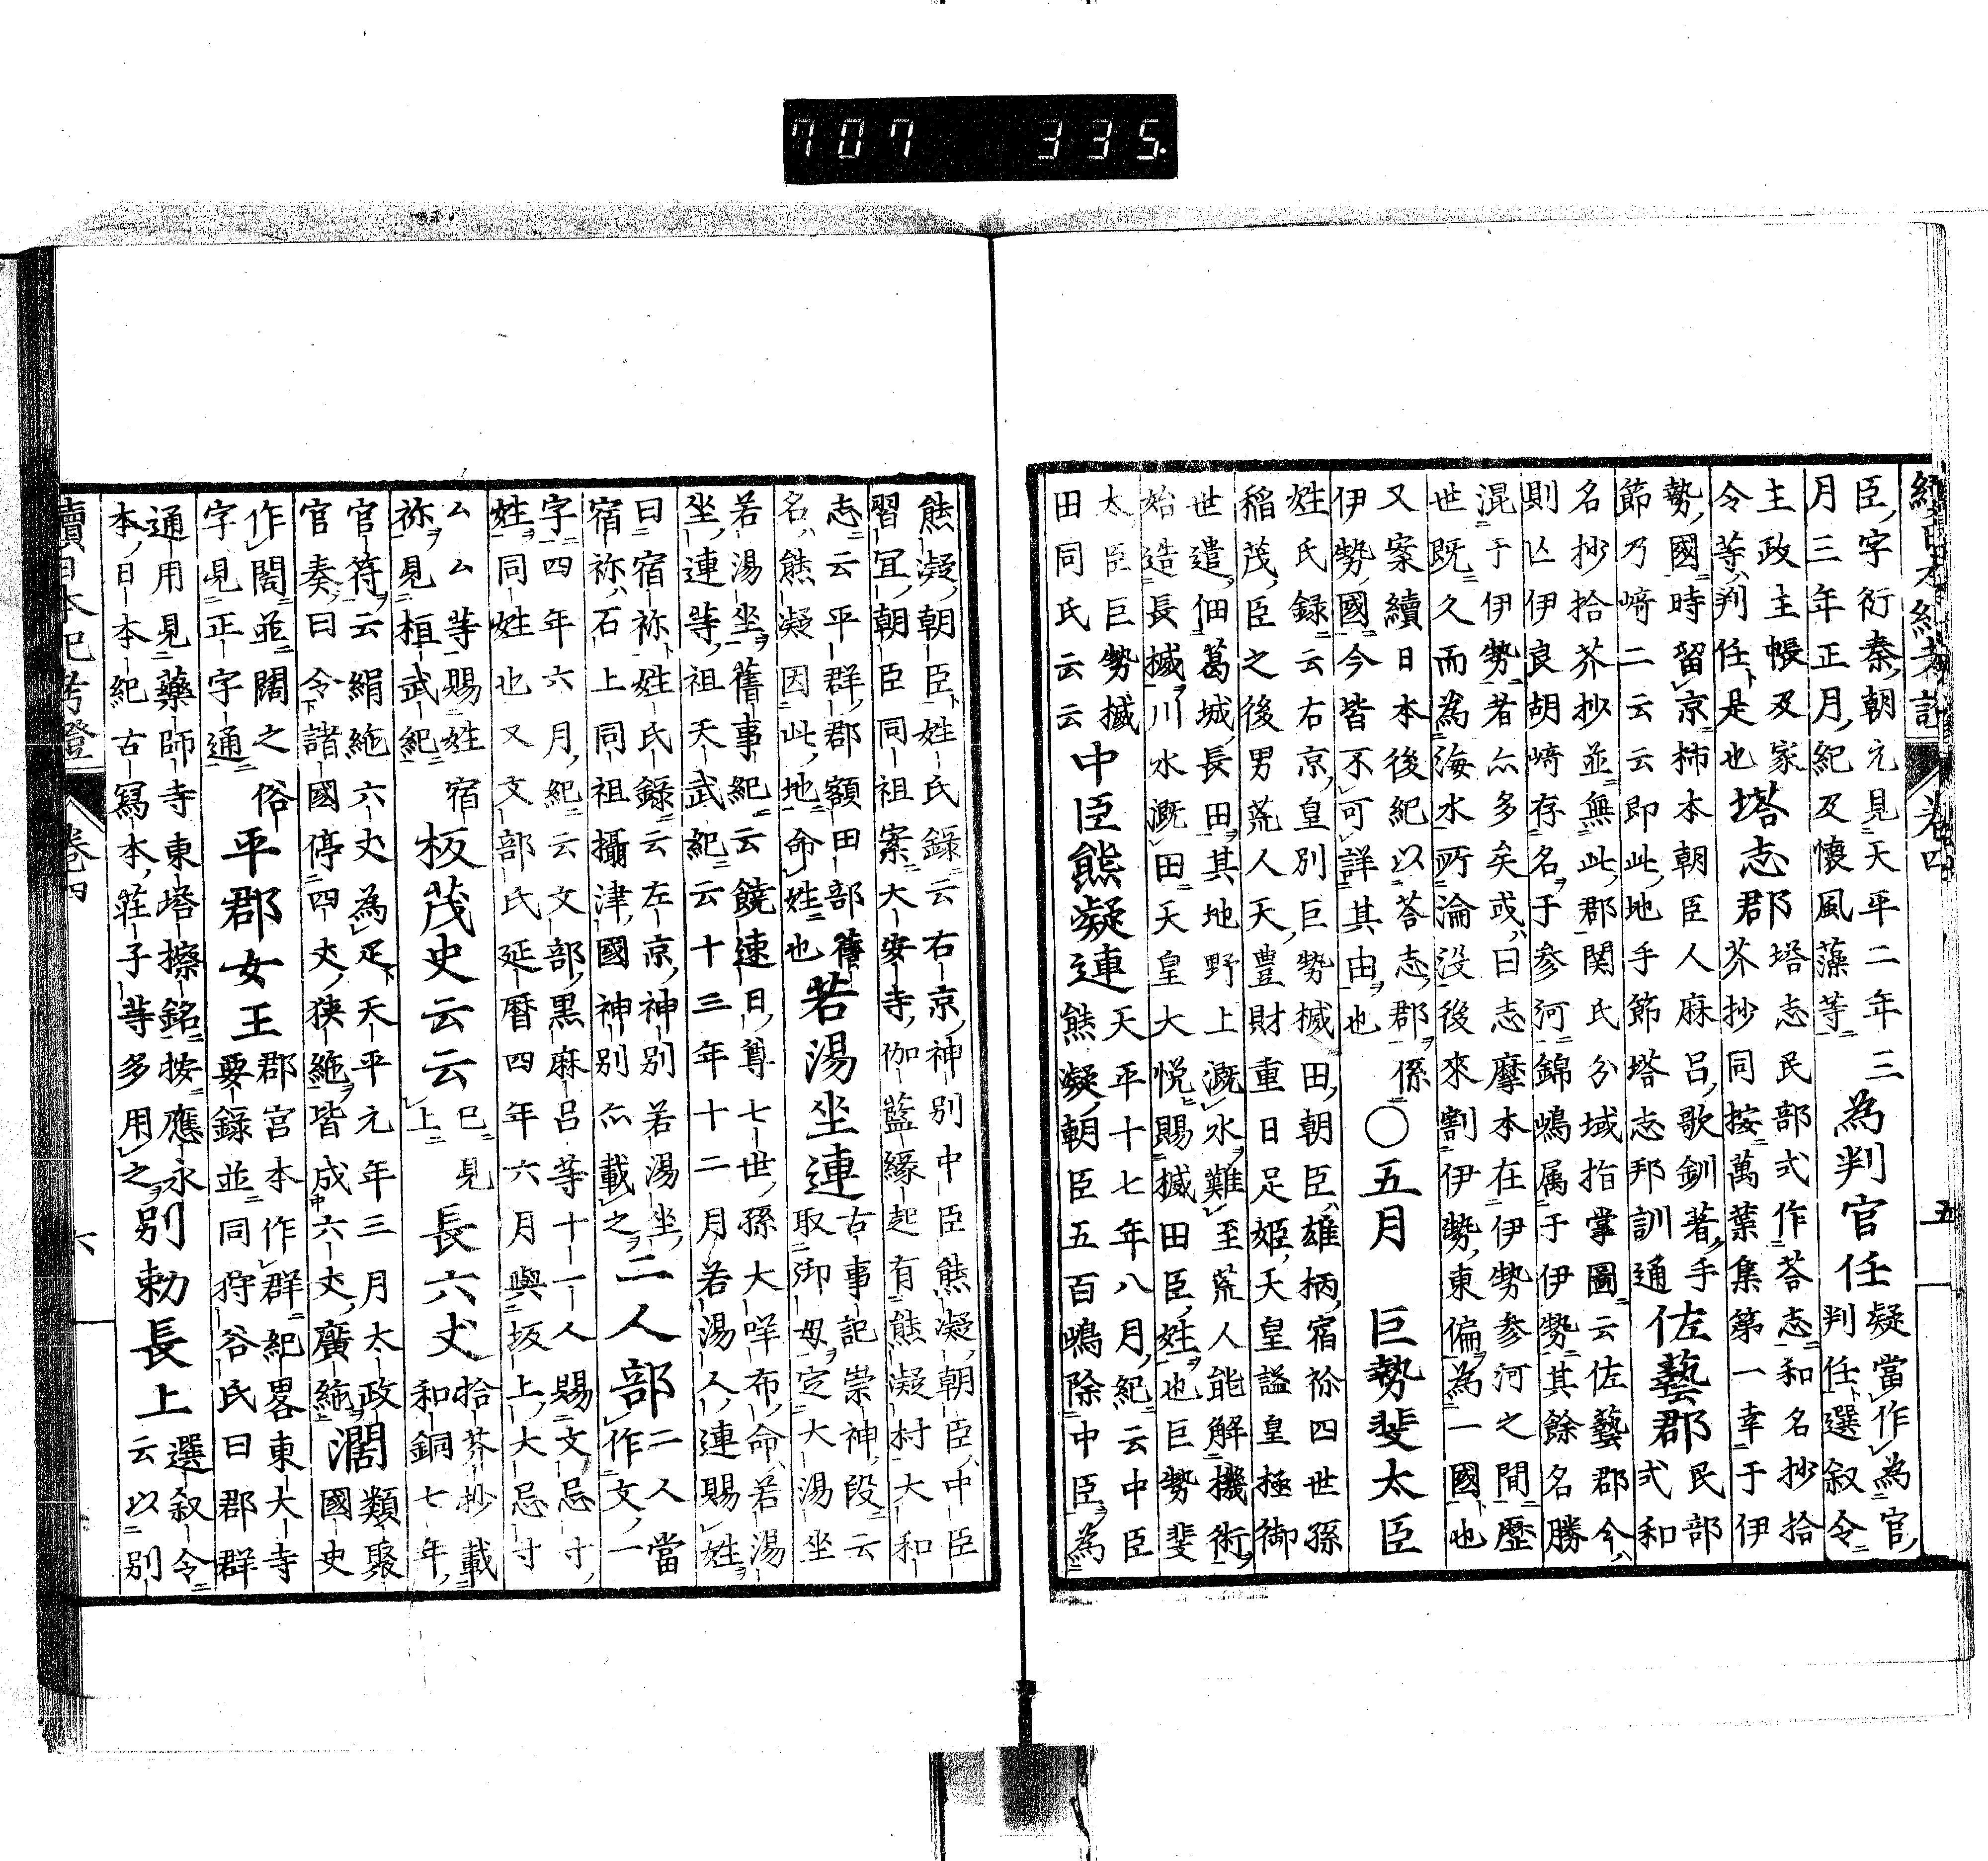 續日本紀考證 卷四 五
臣字衍秦朝元見天平二年三
月三年正月紀及懷風藻等
為判官任
疑當作為官
判任選叙令
主政主帳及家
令等判任是也
塔志郡
塔志民部式作荅志和名抄拾
芥抄同按萬葉集第一幸于伊
勢國時留京柿本朝臣人麻呂歌釧著手
節乃﨑二云云即此地手節塔志邦訓通
佐藝郡
民部
式和
名抄拾芥抄並無此郡関氏分域指掌圖云佐藝郡今
則亾伊良胡﨑存名于參河錦嶋属于伊勢其餘名勝
混于伊勢者亦多矣或曰志摩本在伊勢參河之間歷
世既久而為海水所淪没後來割伊勢東偏為一國也
又案續日本後紀以荅志郡係
伊勢國今皆不可詳其由也
〇五月 巨勢斐太臣
姓氏録云右京皇別巨勢楲田朝臣雄柄宿祢四世孫
稲茂臣之後男荒人天豊財重日足姫天皇謚皇極御
世遣佃葛城長田其地野上漑水難至荒人能解機術
始造長楲川水漑田天皇大悦賜楲田臣姓也巨勢斐
太臣巨勢楲
田同氏云云
中臣熊凝連
天平十七年八月紀云中臣
熊凝朝臣五百嶋除中臣為
熊凝朝臣姓氏録云右京神別中臣熊凝朝臣中臣
習宜朝臣同祖案大安寺伽藍縁起有熊凝村大和
志云平群郡額田部舊
名熊凝因此地命姓也
若湯坐連
古事記崇神段云
取御母定大湯坐
若湯坐舊事紀云饒速日尊七世孫大咩布命若湯
坐連等祖天武紀云十三年十二月若湯人連賜姓
曰宿祢姓氏録云左京神別若湯坐
宿祢石上同祖攝津國神別亦載之
二人部
二人當
作文一
字四年六月紀云文部黒麻呂等十一人賜文忌寸
姓同姓也又文部氏延暦四年六月與坂上大忌寸
ムム等賜姓宿
祢見桓武紀
板茂史云云
已見
上
長六丈
拾芥抄載
和銅七年
官符云絹絁六丈為疋天平元年三月太政
官奏曰令諸國停四丈狭絁皆成六丈廣絁
濶
類聚
國史
作闊並闊之俗
字見正字通
平郡女王
郡宮本作群紀畧東大寺
要録並同狩谷氏曰郡群
通用見藥師寺東塔擦銘按應永
本日本紀古寫本莊子等多用之
別勅長上
選叙令
云以別
續日本紀考證 卷四 六